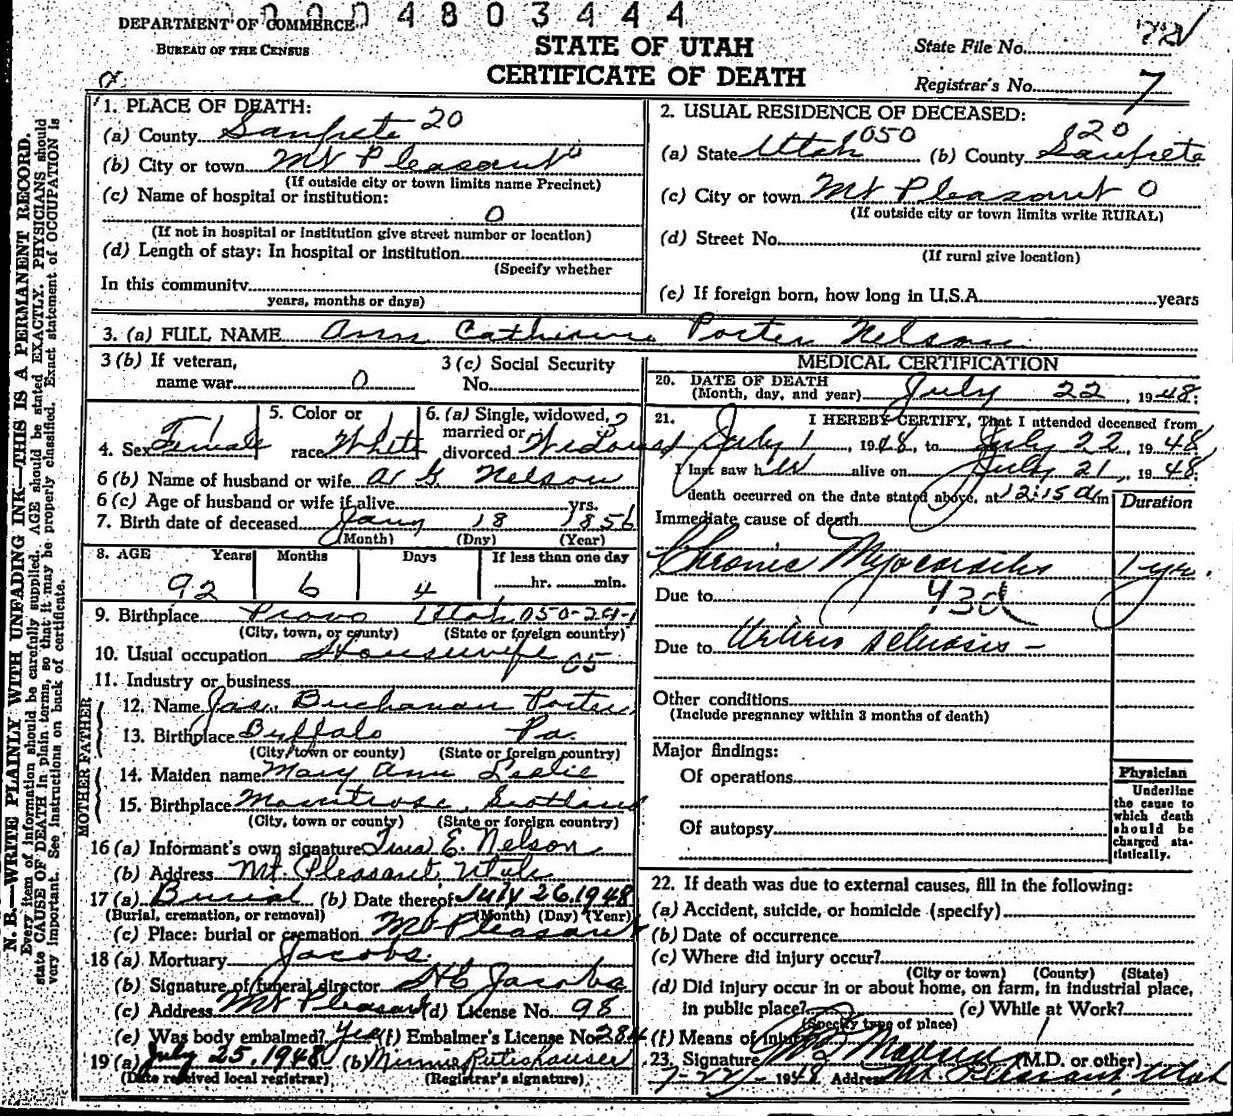 0 0 0 4 8 0 3 4 4 4
DEPARTMENT OF COMMERCE
BUREAU OF THE CENSUS
STATE OF UTAH
CERTIFICATE OF DEATH
State File No.
Registrar's No. 7
N. B.—WRITE PLAINLY WITH UNFADING INK—THIS IS A PERMANENT RECORD.
Every item of information should be carefully supplied. AGE should be stated EXACTLY. PHYSICIANS should
state CAUSE OF DEATH in plain terms, so that it may be properly classified. Exact statement of OCCUPATION is
very important. See instructions on back of certificate.
1. PLACE OF DEATH:
(a) County Sanpete 20
(b) City or town Mt Pleasant 0
(If outside city or town limits name Precinct)
(c) Name of hospital or institution:
0
(If not in hospital or institution give street number or location)
(d) Length of stay: In hospital or institution
(Specify whether
In this community
years, months or days)
2. USUAL RESIDENCE OF DECEASED:
(a) State Utah 050 (b) County Sanpete 20
(c) City or town Mt Pleasant 0
(If outside city or town limits write RURAL)
(d) Street No.
(If rural give location)
(e) If foreign born, how long in U.S.A. years
3. (a) FULL NAME Ann Catherine Porter Nelson
3 (b) If veteran,
name war 0
3 (c) Social Security
No.
4. Sex Female
5. Color or
race White
6. (a) Single, widowed,
married or
divorced Widowed
6 (b) Name of husband or wife A G Nelson
6 (c) Age of husband or wife if alive yrs.
7. Birth date of deceased Jany 18 1856
(Month) (Day) (Year)
8. AGE Years Months Days If less than one day
92 6 4 hr. min.
9. Birthplace Provo Utah 050-24-1
(City, town, or county) (State or foreign country)
10. Usual occupation Housewife 05
11. Industry or business
FATHER
12. Name Jas. Buchanan Porter
13. Birthplace Buffalo Pa.
(City, town or county) (State or foreign country)
MOTHER
14. Maiden name Mary Ann Leslie
15. Birthplace Montrose, Scotland
(City, town or county) (State or foreign country)
16 (a) Informant's own signature E. Nelson
(b) Address Mt. Pleasant, Utah
17 (a) Burial (b) Date thereof July 26, 1948
(Burial, cremation, or removal) (Month) (Day) (Year)
(c) Place: burial or cremation Mt Pleasant
18 (a) Mortuary Jacobs
(b) Signature of funeral director H E Jacobs
(c) Address Mt Pleasant (d) License No. 98
(e) Was body embalmed? Yes (f) Embalmer's License No. 284
19 (a) July 25, 1948 (b) Minnie
(Date received local registrar) (Registrar's signature)
MEDICAL CERTIFICATION
20. DATE OF DEATH
(Month, day, and year) July 22, 1948;
21. I HEREBY CERTIFY, That I attended deceased from
July 1, 1948, to July 22, 1948
I last saw her alive on July 21, 1948;
death occurred on the date stated above, at 12:15 a m
Duration
Immediate cause of death
Chronic Myocarditis 1 yr.
Due to 93d
Due to Arterio sclerosis -
Other conditions
(Include pregnancy within 3 months of death)
Major findings:
Of operations
Of autopsy
Physician
Underline
the cause to
which death
should be
charged sta-
tistically.
22. If death was due to external causes, fill in the following:
(a) Accident, suicide, or homicide (specify)
(b) Date of occurrence
(c) Where did injury occur?
(City or town) (County) (State)
(d) Did injury occur in or about home, on farm, in industrial place,
in public place? (e) While at Work?
(Specify type of place)
(f) Means of injury
23. Signature Madsen (M.D. or other)
7-22-1948 Address Mt Pleasant, Utah